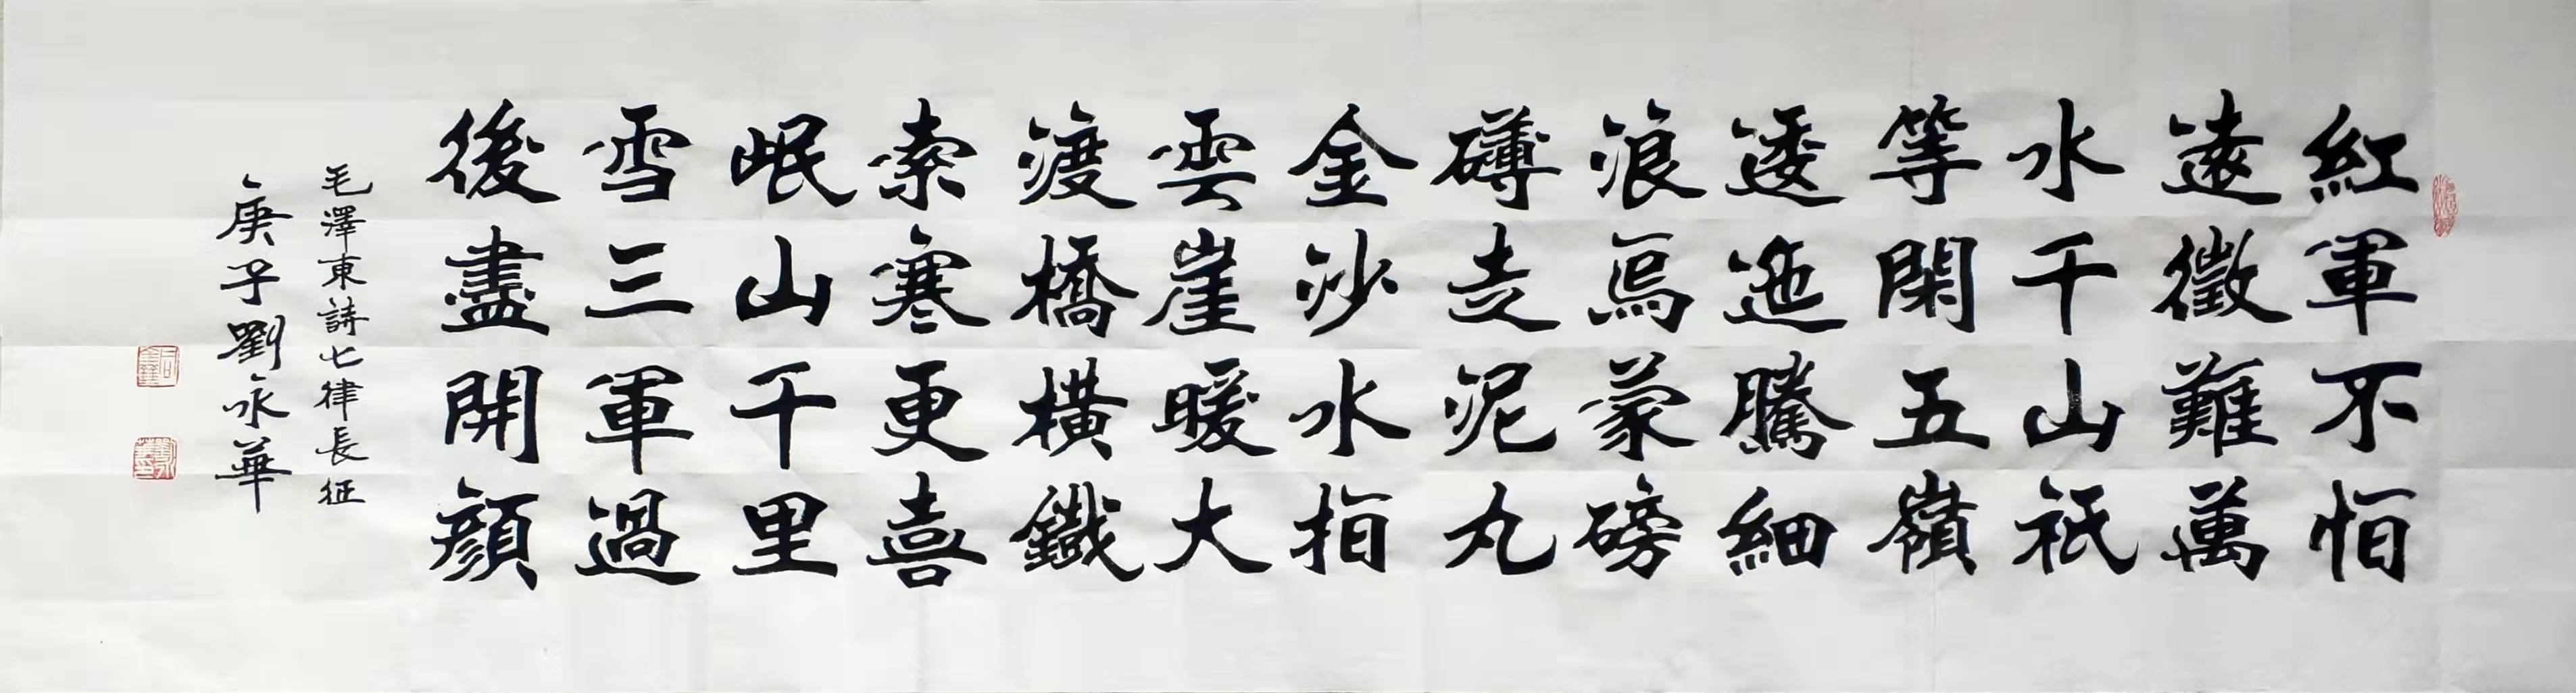 紅軍不怕
遠徵難萬
水千山祇
等閑五嶺
逶迤騰細
浪烏蒙磅
礴走泥丸
金沙水拍
雲崖暖大
渡橋橫鐵
索寒更喜
岷山千里
雪三軍過
後盡開顏
毛澤東詩七律長征
庚子劉永華